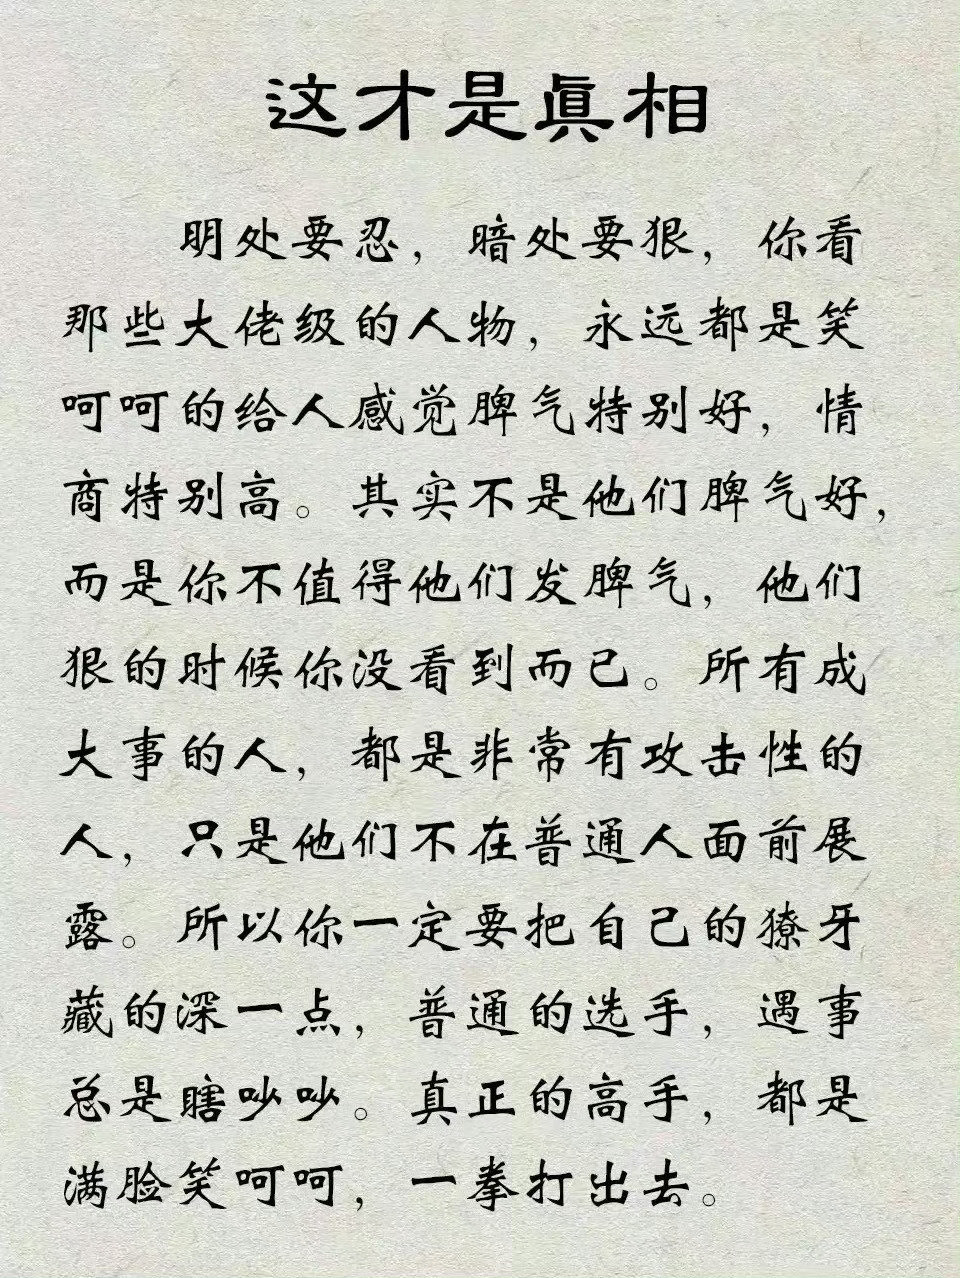 这才是眞相
明处要忍，暗处要狠，你看
那些大佬级的人物，永远都是笑
呵呵的给人感觉脾气特别好，情
商特别高。其实不是他们脾气好，
而是你不值得他们发脾气，他们
狠的时候你没看到而已。所有成
大事的人，都是非常有攻击性的
人，只是他们不在普通人面前展
露。所以你一定要把自己的獠牙
藏的深一点，普通的选手，遇事
总是瞎吵吵。真正的高手，都是
满脸笑呵呵，一拳打出去。